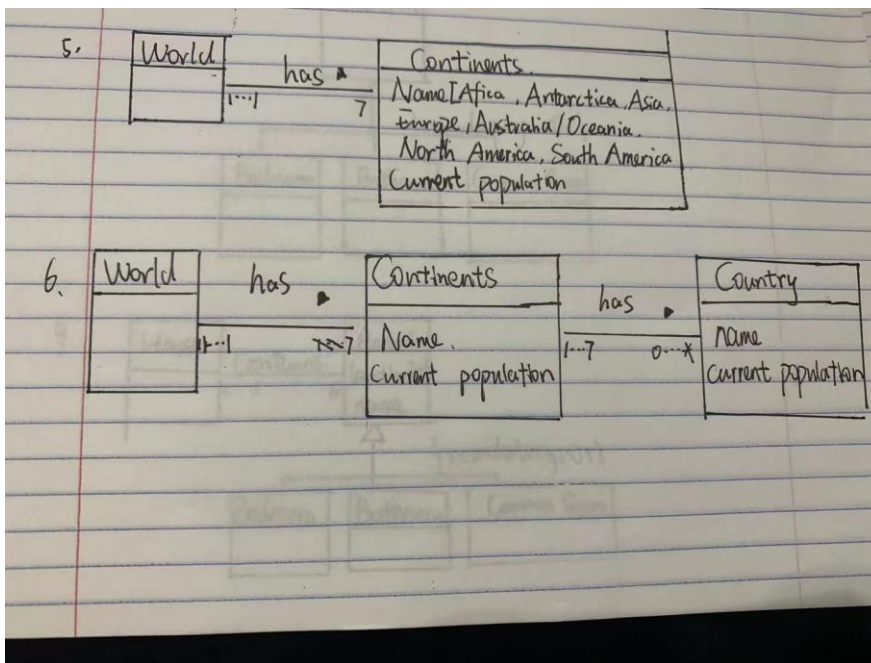 5.
World
has
1...1
7
Continents.
Name[Africa, Antarctica, Asia,
Europe, Australia/Oceania.
North America, South America
Current population
6.
World
has
1...1
7
Continents
Name.
Current population
has
1...7
0...*
Country
name
current population